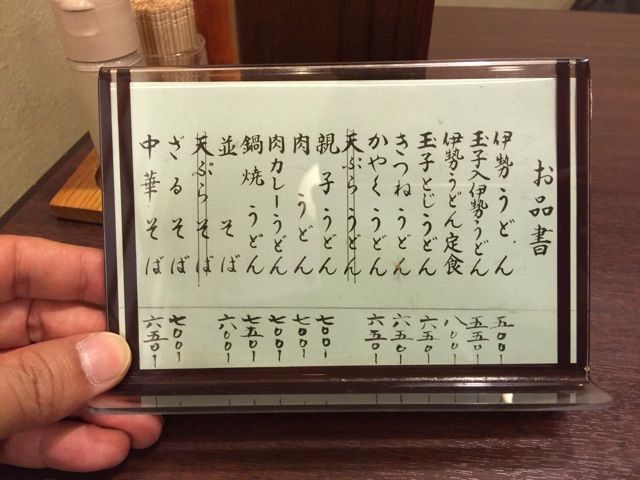 お品書
伊勢うどん 五〇〇ー
玉子入伊勢うどん 五五〇ー
伊勢うどん定食 八〇〇ー
玉子とじうどん 六五〇ー
きつねうどん 六五〇ー
かやくうどん 六五〇ー
天ぷらうどん
親子うどん 七〇〇ー
肉うどん 七〇〇ー
肉カレーうどん 七〇〇ー
鍋焼うどん 七五〇ー
並そば 六〇〇ー
天ぷらそば
ざるそば 七〇〇ー
中華そば 六五〇ー